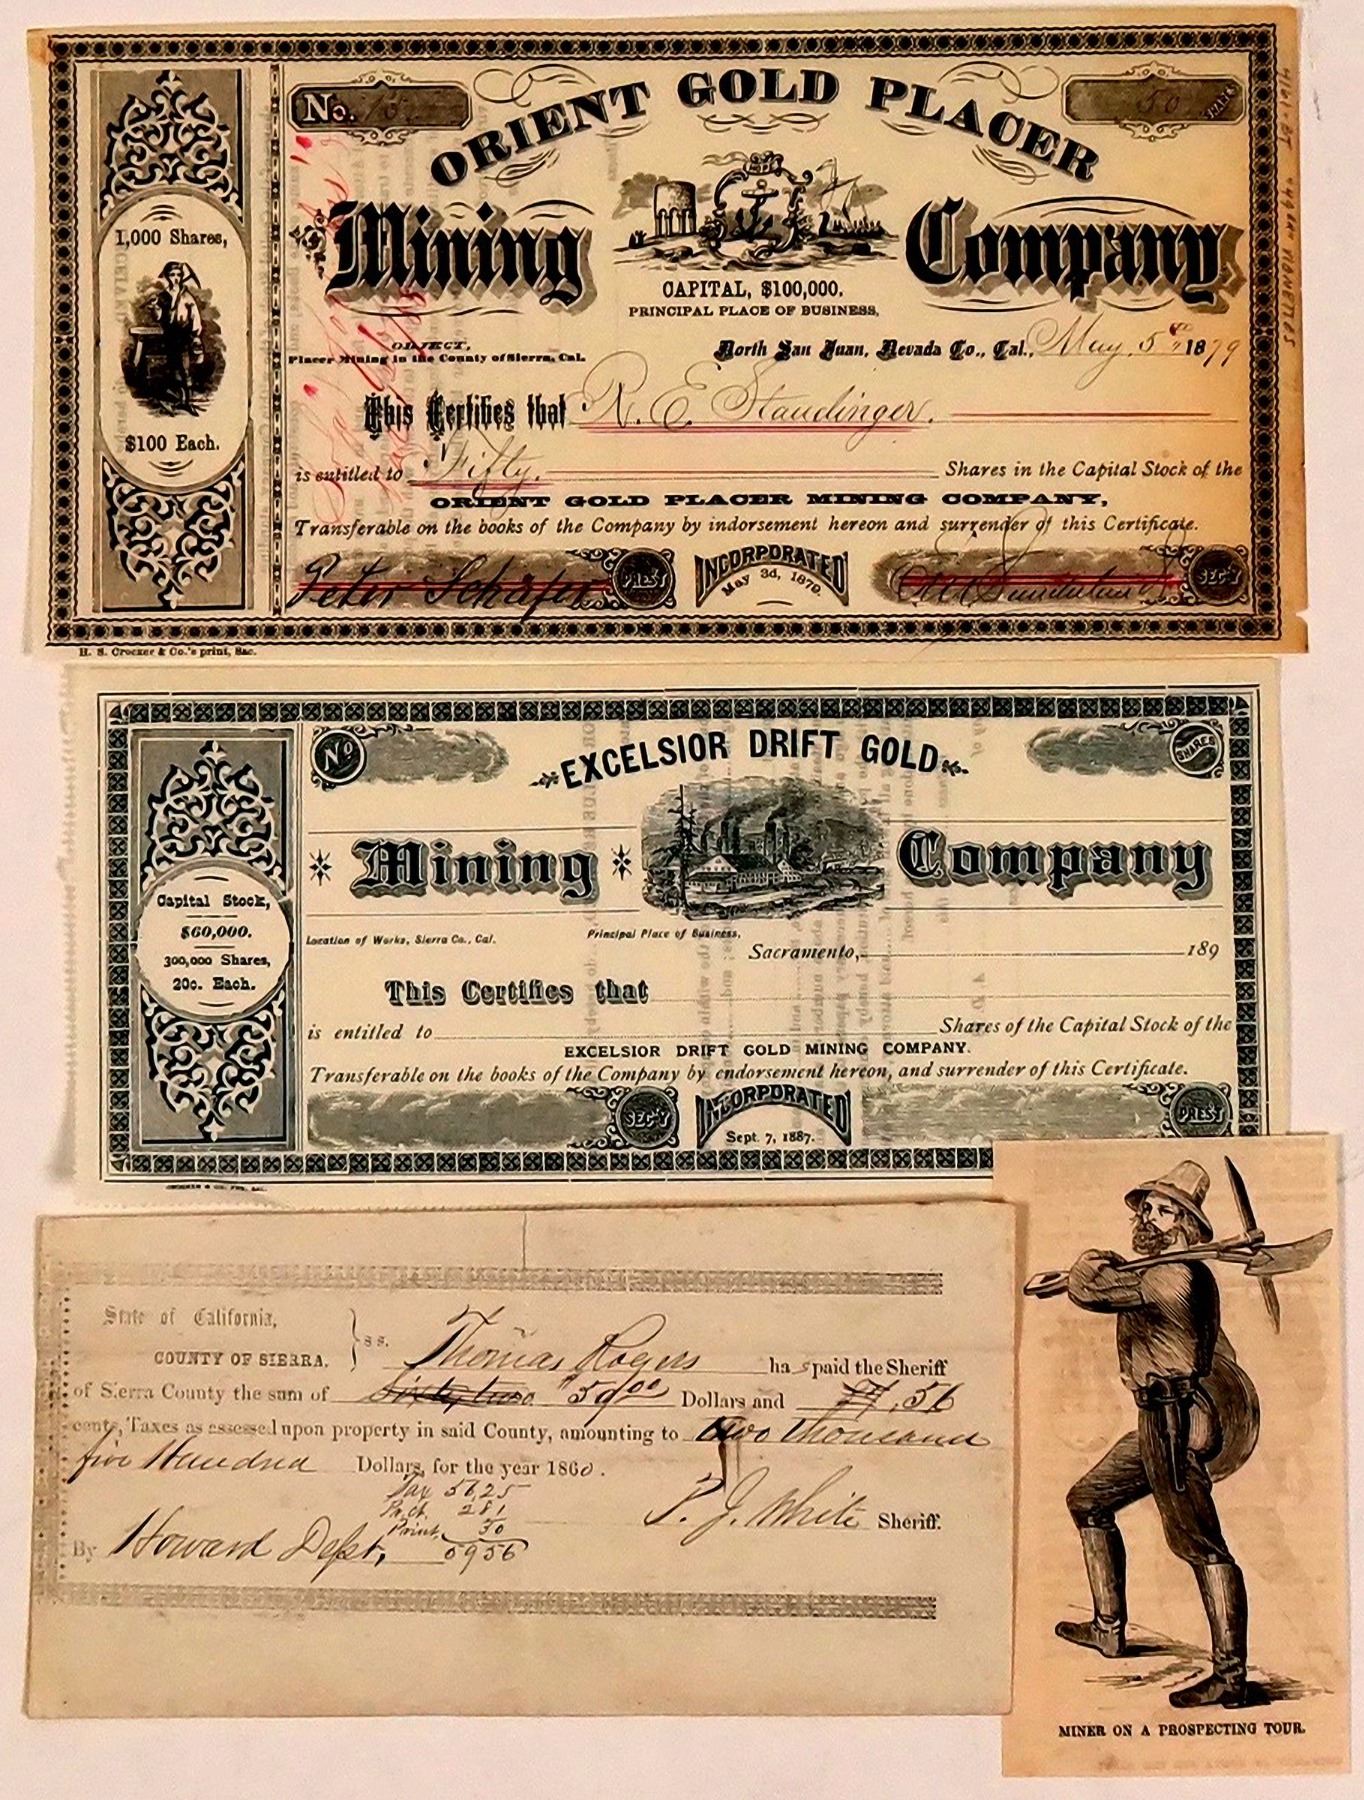 No. 15
50 SHARES
ORIENT GOLD PLACER
Mining Company
1,000 Shares,
$100 Each.
CAPITAL, $100,000.
PRINCIPAL PLACE OF BUSINESS,
OBJECT,
Placer Mining in the County of Sierra, Cal.
North San Juan, Nevada Co., Cal., May 5th 1879
This Certifies that R. E. Staudinger.
is entitled to Fifty. Shares in the Capital Stock of the
ORIENT GOLD PLACER MINING COMPANY,
Transferable on the books of the Company by indorsement hereon and surrender of this Certificate.
Peter Schäfer PREST
INCORPORATED
May 3d, 1879.
SEC'Y
H. S. Crocker & Co.'s print, Sac.
No.
SHARES
EXCELSIOR DRIFT GOLD
Mining Company
Capital Stock,
$60,000.
300,000 Shares,
20c. Each.
Location of Works, Sierra Co., Cal.
Principal Place of Business,
Sacramento, 189
This Certifies that
is entitled to Shares of the Capital Stock of the
EXCELSIOR DRIFT GOLD MINING COMPANY.
Transferable on the books of the Company by endorsement hereon, and surrender of this Certificate.
SEC'Y
INCORPORATED
Sept. 7, 1887.
PREST
State of California,
COUNTY OF SIERRA. } ss.
Thomas Rogers has paid the Sheriff
of Sierra County the sum of Sixty two $59 00 Dollars and , 56
cents, Taxes as assessed upon property in said County, amounting to Two Thousand
five Hundred Dollars, for the year 1860.
Tax 56,25
Pr.ct. 281
Print 50
5956
P. J. White Sheriff.
By Howard Dept,
MINER ON A PROSPECTING TOUR.